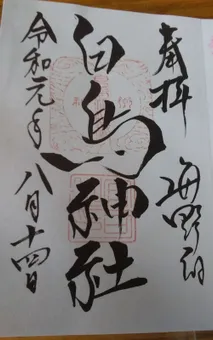 奉拝
海野郷
白鳥神社
令和元年
八月十四日